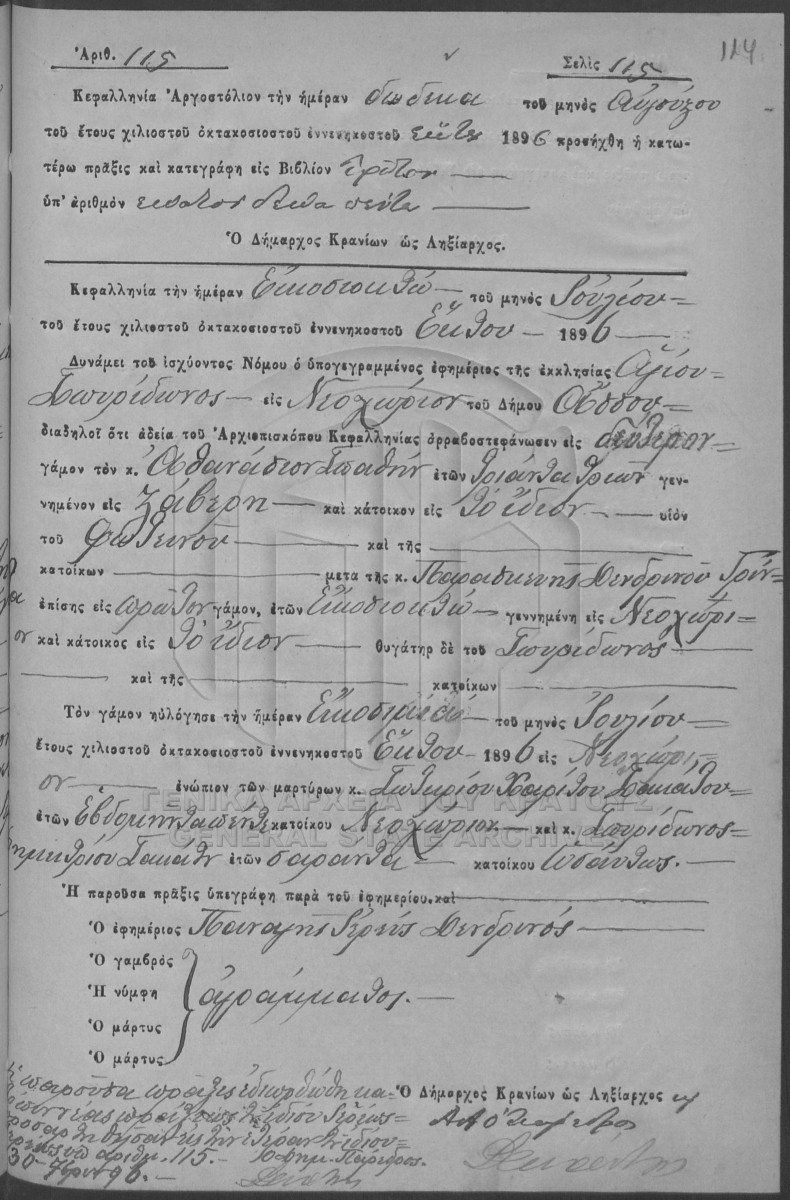 114
Ἀριθ. 115 Σελὶς 115
Κεφαλληνία Ἀργοστόλιον τὴν ἡμέραν δώδεκα τοῦ μηνὸς Αὐγούστου
τοῦ ἔτους χιλιοστοῦ ὀκτακοσιοστοῦ ἐννενηκοστοῦ 1896 προσήχθη ἡ κατω-
τέρω πρᾶξις καὶ κατεγράφη εἰς Βιβλίον
ὑπ' ἀριθμὸν εκατον δεκα πεντε
Ὁ Δήμαρχος Κρανίων ὡς Ληξίαρχος.
Κεφαλληνία τὴν ἡμέραν Εἰκοσιοκτώ τοῦ μηνὸς Ἰουλίου
τοῦ ἔτους χιλιοστοῦ ὀκτακοσιοστοῦ ἐννενηκοστοῦ Ἕκτου 1896
Δυνάμει τοῦ ἰσχύοντος Νόμου ὁ ὑπογεγραμμένος ἐφημέριος τῆς ἐκκλησίας Ἁγίου
Σπυρίδωνος εἰς Νεοχώριον τοῦ Δήμου
διαδηλοῖ ὅτι ἀδείᾳ τοῦ Ἀρχιεπισκόπου Κεφαλληνίας ἀρραβοστεφάνωσεν εἰς δεύτερον
γάμον τὸν κ. Ἀθανάσιον Σπαθήν ἐτῶν τριάντα τριῶν γεν-
νημένον εἰς Ζάβερη καὶ κάτοικον εἰς τὸ ἴδιον υἱὸν
τοῦ Φωτεινοῦ καὶ τῆς
κατοίκων μετὰ τῆς κ. Παρασκευῆς Δενδρινοῦ
ἐπίσης εἰς πρῶτον γάμον, ἐτῶν Εἰκοσιοκτώ γεννημένη εἰς Νεοχώρι-
ον καὶ κάτοικος εἰς τὸ ἴδιον θυγάτηρ δὲ τοῦ Σπυρίδωνος
καὶ τῆς κατοίκων
Τὸν γάμον ηὐλόγησε τὴν ἡμέραν τοῦ μηνὸς Ἰουλίου
ἔτους χιλιοστοῦ ὀκτακοσιοστοῦ ἐννενηκοστοῦ Ἕκτου 1896 εἰς Νεοχώρι-
ον ἐνώπιον τῶν μαρτύρων κ. Σωτηρίου Χαρίτου
ἐτῶν Ἑβδομήντα πέντε κατοίκου Νεοχώριον καὶ κ. Σπυρίδωνος
ἐτῶν σαράντα κατοίκου ὡσαύτως.
Ἡ παροῦσα πρᾶξις ὑπεγράφη παρὰ τοῦ ἐφημερίου. καὶ
Ὁ ἐφημέριος Παναγῆς Ἱερεύς Δενδρινός
Ὁ γαμβρὸς
Ἡ νύμφη ἀγράμματος.
Ὁ μάρτυς
Ὁ μάρτυς
Ὁ Δήμαρχος Κρανίων ὡς Ληξίαρχος
παροῦσα πρᾶξις ἐδιορθώθη κα-
ἀριθμ. 115. Ὁ Δημ. Πάρεδρος.
ΓΕΝΙΚΑ ΑΡΧΕΙΑ ΤΟΥ ΚΡΑΤΟΥΣ
GENERAL STATE ARCHIVES